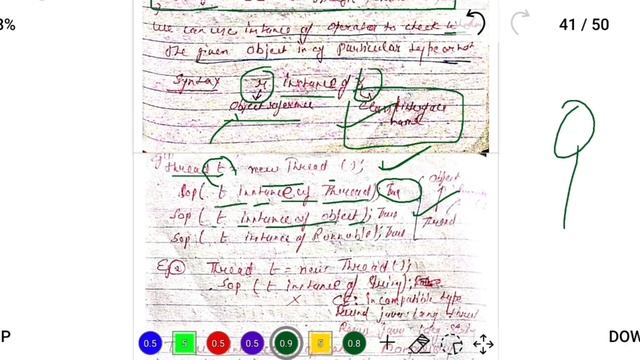 3%
41 / 50
we can use instance of operator to check
the given object is of particular type or not
Syntax r instance of
Object reference
Class/interface
name
Thread t = new Thread ();
Sop( t instance of Thread); True
Sop( t instance of object); True
Sop( t instance of Runnable); True
Object
Thread
Eg Thread t = new Thread();
Sop (t instance of String);
X CE: incompatible type
0.5 5 0.5 0.5 0.9 5 0.8
P
DOW